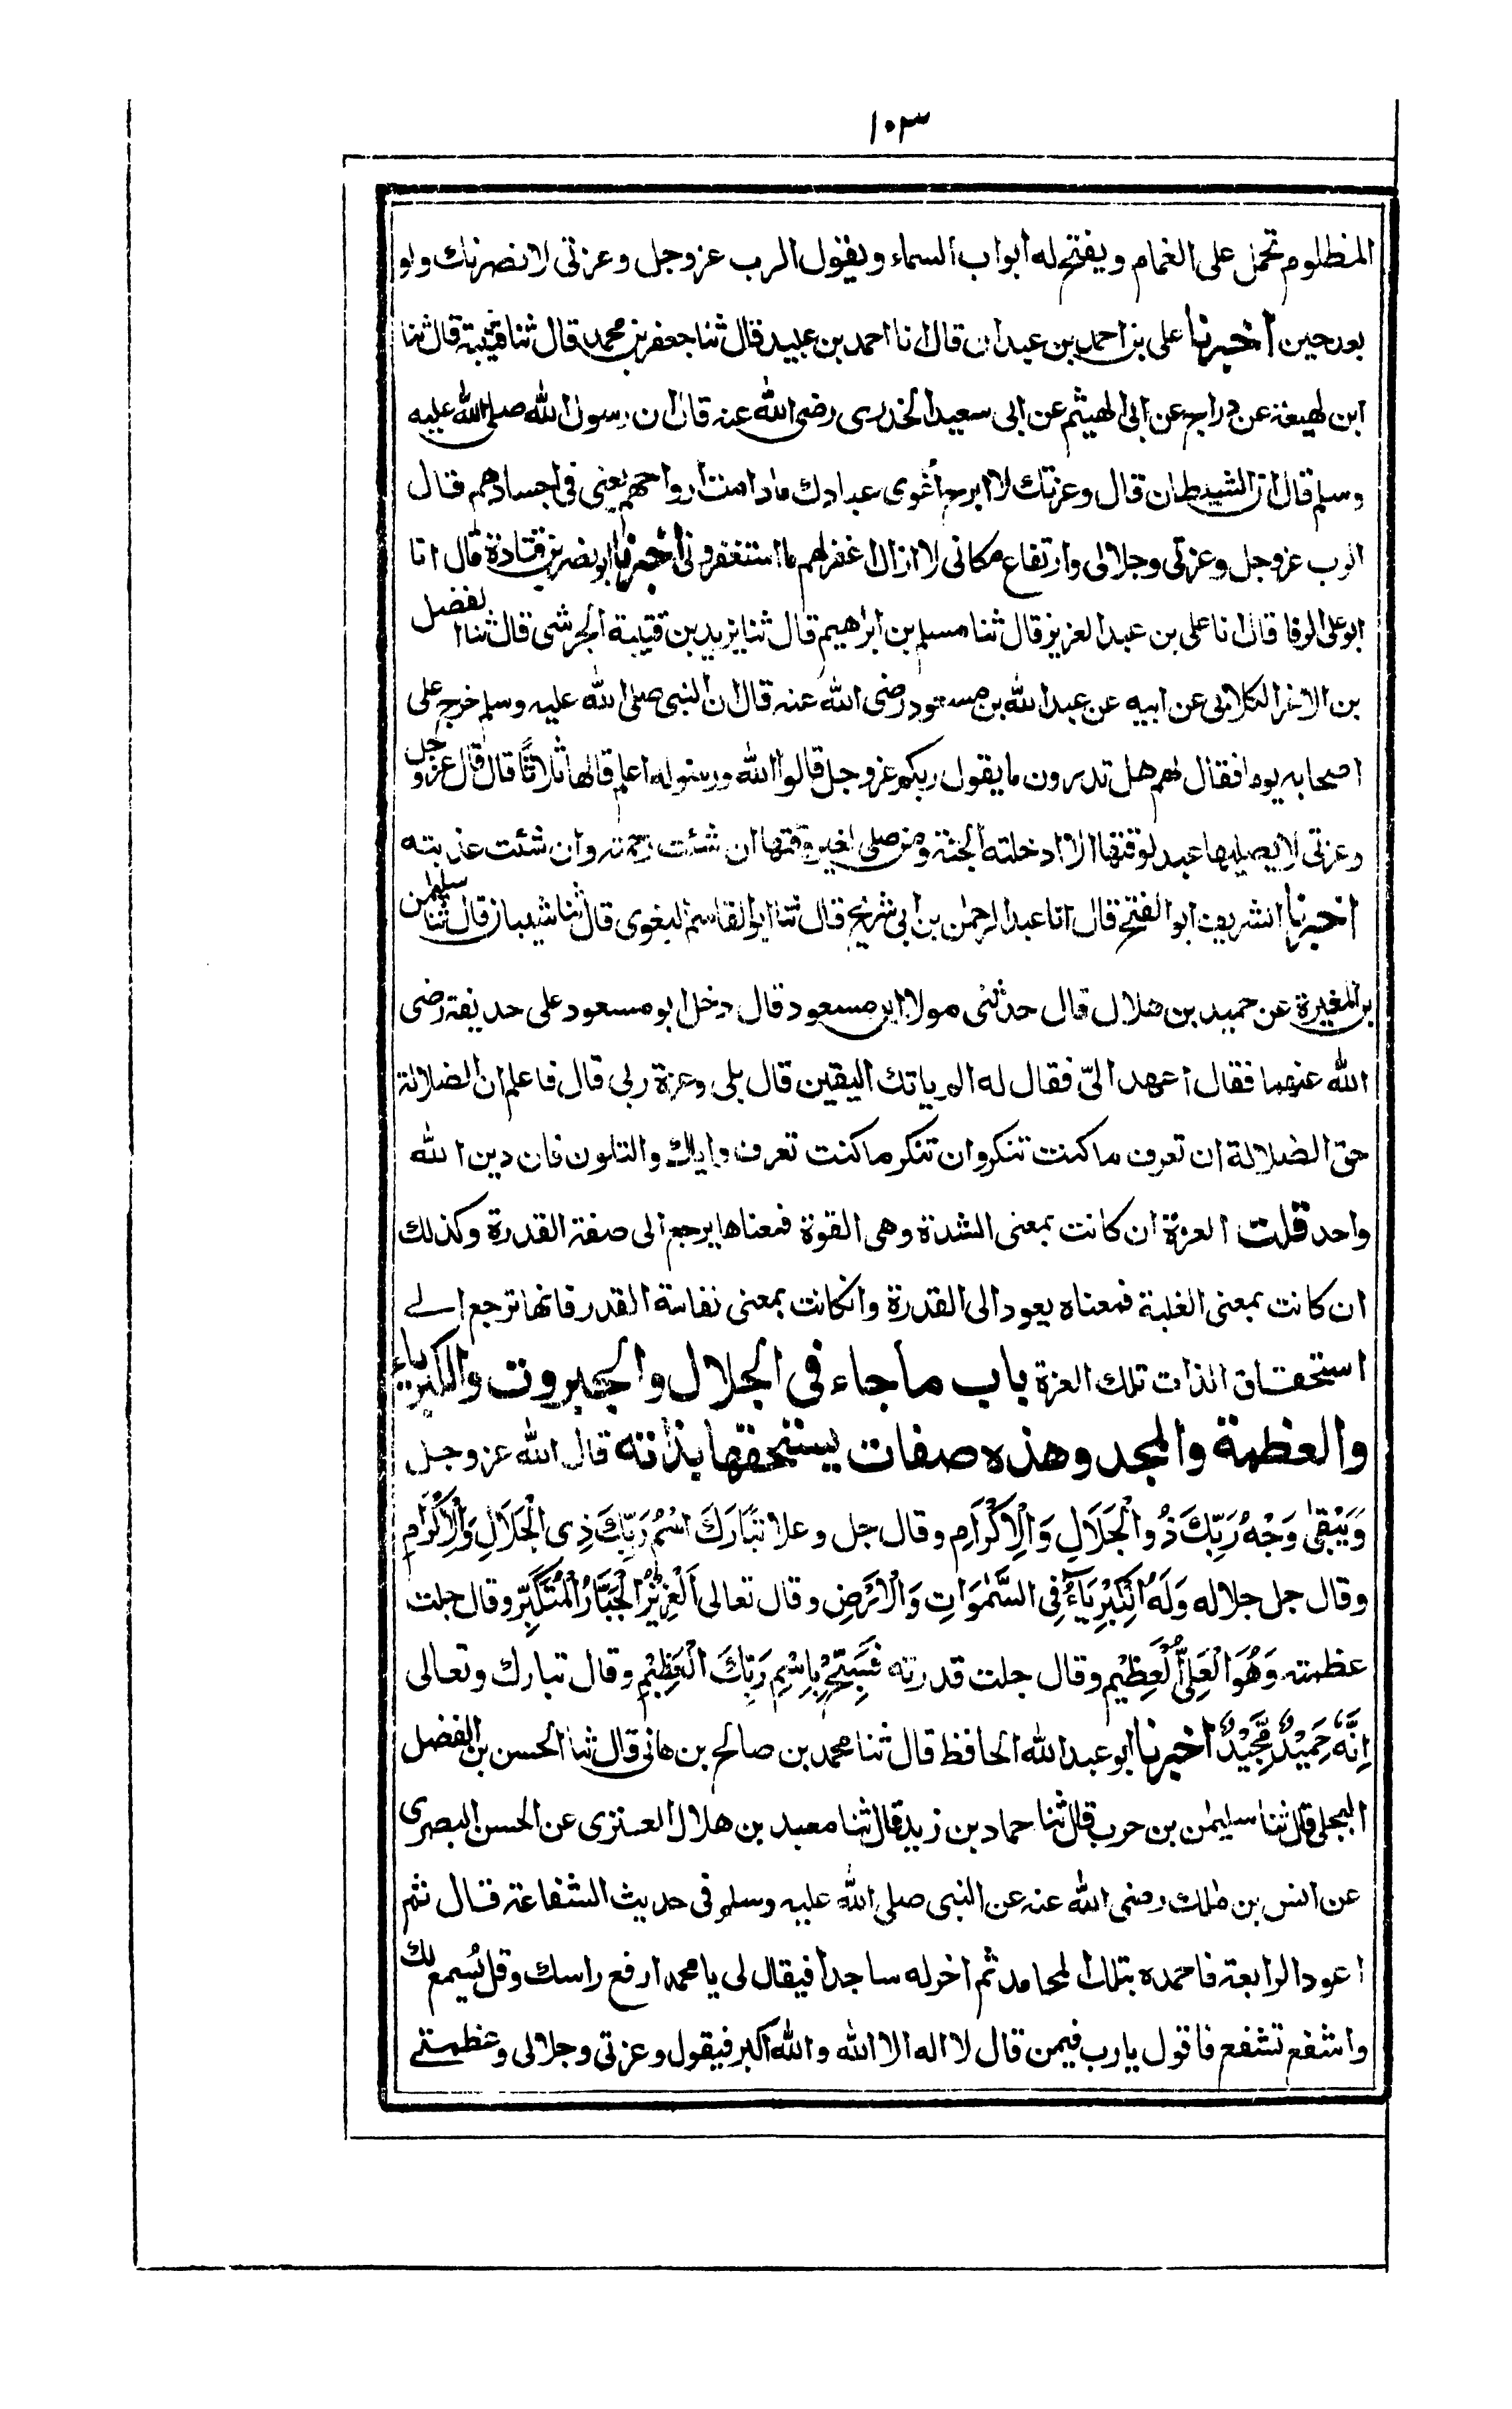 ١٠٣
المظلوم تحمل على الغمام ويفتح له ابواب السماء ويقول الرب عز وجل وعزتى لانصرنك ولو
بعد حين اخبرنا على بن احمد بن عبدان قال انا احمد بن عبيد قال ثنا جعفر بن محمد قال ثنا قتيبة قال ثنا
ابن لهيعة عن دراج عن ابى الهيثم عن ابى سعيد الخدرى رضى الله عنه قال ان رسول الله صلى الله عليه
وسلم قال ان الشيطان قال وعزتك لا ابرح أغوى عبادك ما دامت ارواحهم يعنى فى اجسادهم قال
الرب عز وجل وعزتى وجلالى وارتفاع مكانى لا ازال اغفر لهم ما استغفرونى اخبرنا ابو نصر بن قتادة قال انا
ابو على الرفا قال انا على بن عبد العزيز قال ثنا مسلم بن ابراهيم قال ثنا يزيد بن قتيبة الجرشى قال ثنا الفضل
بن الاغر الكلابى عن ابيه عن عبد الله بن مسعود رضى الله عنه قال ان النبى صلى الله عليه وسلم خرج على
اصحابه يوما فقال لهم هل تدرون ما يقول ربكم عز وجل قالوا الله ورسوله اعلم قالها ثلاثًا قال قال عز وجل
وعزتى لا يصليها عبد لوقتها الا ادخلته الجنة ومن صلى لغير وقتها ان شئت رحمته وان شئت عذبته
اخبرنا الشريف ابو الفتح قال انا عبد الرحمن بن ابى شريح قال ثنا ابو القاسم البغوى قال ثنا شيبان قال ثنا سليمن
بن المغيرة عن حميد بن هلال قال حدثنى مولا ابن مسعود قال دخل ابو مسعود على حذيفة رضى
الله عنهما فقال اعهد الىّ فقال له الم ياتك اليقين قال بلى وعزة ربى قال فاعلم ان الضلالة
حق الضلالة ان تعرف ما كنت تنكر وان تنكر ما كنت تعرف واياك والتلون فان دين الله
واحد قلت العزة ان كانت بمعنى الشدة وهى القوة فمعناها يرجع الى صفة القدرة وكذلك
ان كانت بمعنى الغلبة فمعناه يعود الى القدرة وانكانت بمعنى نفاسة القدر فانها ترجع الى
استحقاق الذات تلك العزة باب ما جاء فى الجلال والجبروت والكبرياء
والعظمة والمجد وهذه صفات يستحقها بذاته قال الله عز وجل
وَيَبْقىٰ وَجْهُ رَبِّكَ ذُو الْجَلَالِ وَالْاِكْرَامِ وقال جل وعلا تَبَارَكَ اسْمُ رَبِّكَ ذِى الْجَلَالِ وَالْاِكْرَامِ
وقال جل جلاله وَلَهُ الْكِبْرِيَآءُ فِى السَّمٰوَاتِ وَالْاَرْضِ وقال تعالى اَلْعَزِيْزُ الْجَبَّارُ الْمُتَكَبِّر وقال جلت
عظمته وَهُوَ الْعَلِىُّ الْعَظِيْمِ وقال جلت قدرته فَسَبِّحْ بِاسْمِ رَبِّكَ الْعَظِيْمِ وقال تبارك وتعالى
اِنَّهٗ حَمِيْدٌ مَّجِيْدٌ اخبرنا ابو عبد الله الحافظ قال ثنا محمد بن صالح بن هانى قال ثنا الحسن بن الفضل
البجلى قال ثنا سليمٰن بن حرب قال ثنا حماد بن زيد قال ثنا معبد بن هلال العنزى عن الحسن البصرى
عن انس بن مالك رضى الله عنه عن النبى صلى الله عليه وسلم فى حديث الشفاعة قال ثم
اعود الرابعة فاحمده بتلك المحامد ثم اخر له ساجدا فيقال لى يا محمد ارفع راسك وقل يُسمع لك
واشفع تشفع فاقول يا رب فيمن قال لا اله الا الله والله اكبر فيقول وعزتى وجلالى وعظمتى